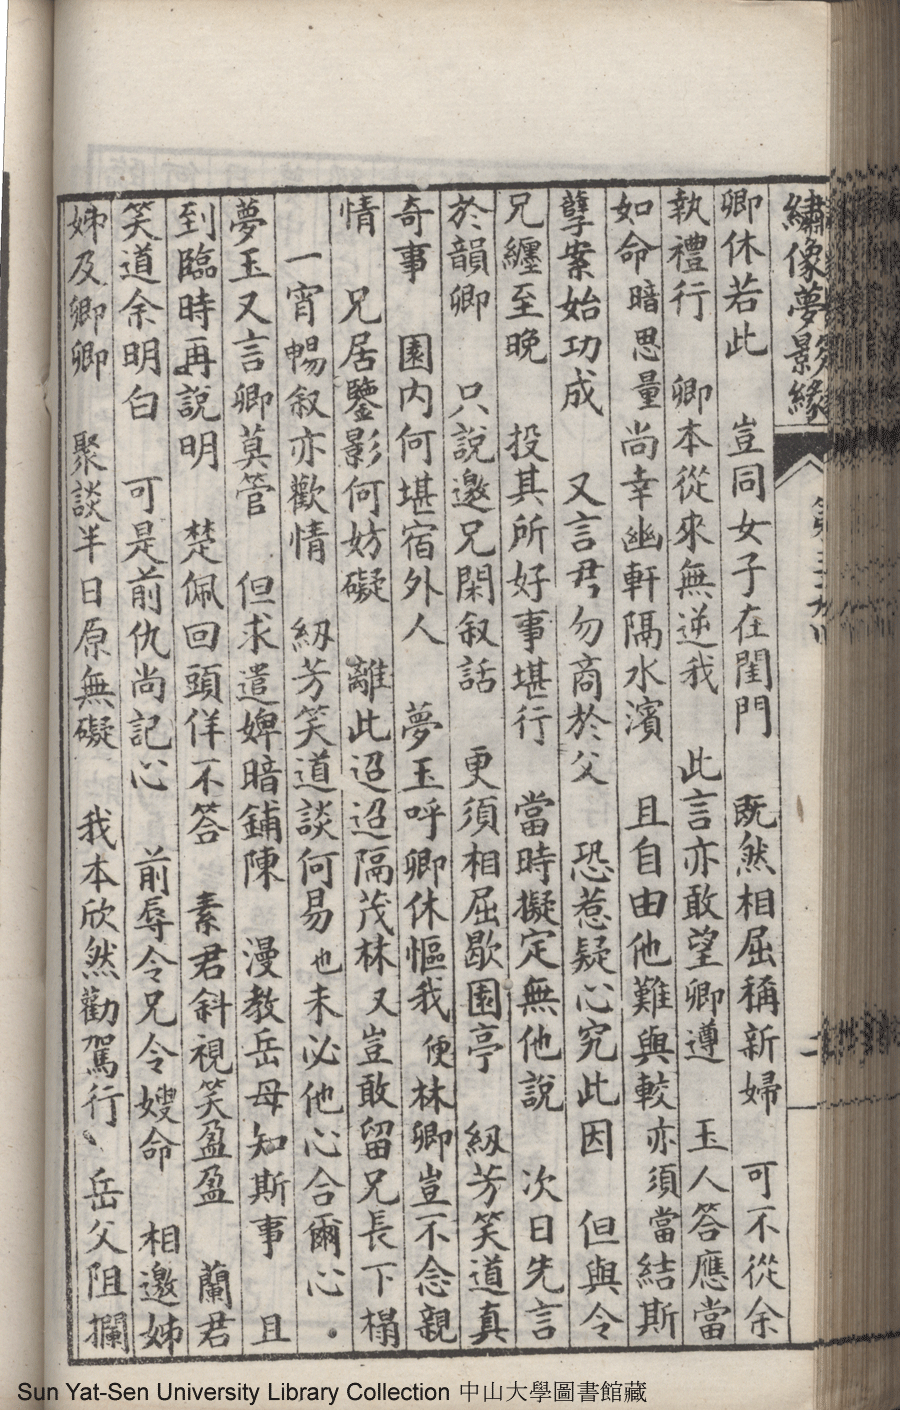 繡像夢景緣
卿休若此　豈同女子在閨門　既然相屈稱新婦　可不從余
執禮行　卿本從來無逆我　此言亦敢望卿遵　玉人答應當
如命暗思量尚幸幽軒隔水濱　且自由他難與較亦須當結斯
孽案始功成　又言君勿商於父　恐惹疑心究此因　但與令
兄纏至晚　投其所好事堪行　當時擬定無他說　次日先言
於韻卿　只說邀兄閑叙話　更須相屈歇園亭　紉芳笑道真
奇事　園內何堪宿外人　夢玉呼卿休慪我便林卿豈不念親
情　兄居鑒影何妨礙　離此迢迢隔茂林又豈敢留兄長下榻
一宵暢叙亦歡情　紉芳笑道談何易也未必他心合爾心
夢玉又言卿莫管　但求遣婢暗鋪陳　漫教岳母知斯事　且
到臨時再說明　楚佩回頭佯不答　素君斜視笑盈盈　蘭君
笑道余明白　可是前仇尚記心　前辱令兄令嫂命　相邀姊
姊及卿卿　聚談半日原無礙　我本欣然勸駕行　岳父阻攔
二
Sun Yat-Sen University Library Collection 中山大學圖書館藏